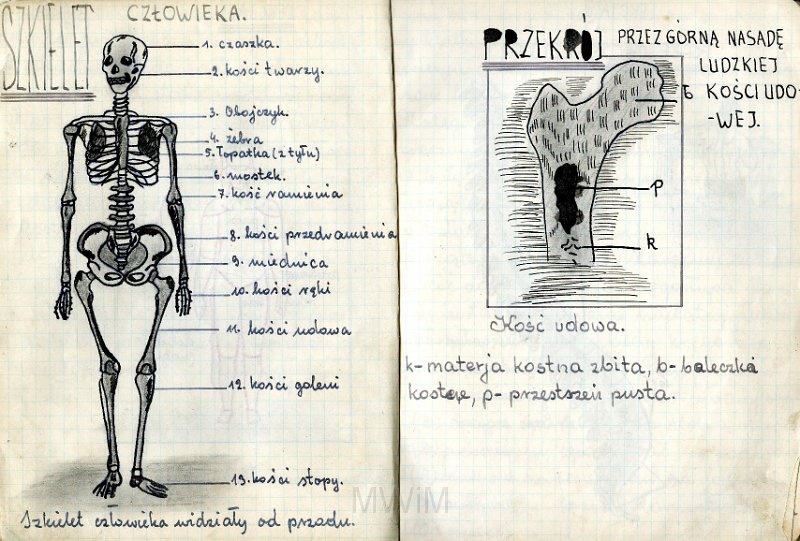 SZKIELET CZŁOWIEKA.
1. czaszka.
2. kości twarzy.
3. Obojczyk.
4. żebra
5. Łopatka (z tyłu)
6. mostek.
7. kość ramienia
8. kości przedramienia
9. miednica
10. kości ręki
11. kości udowa
12. kości goleni
13. kości stopy.
Szkielet człowieka widziały od przodu.
PRZEKRÓJ PRZEZ GÓRNĄ NASADĘ
LUDZKIEJ
KOŚCI UDO-
-WEJ.
b
p
k
Kość udowa.
k- materja kostna zbita, b- beleczka
kostne, p- przestszeń pusta.
MWiM